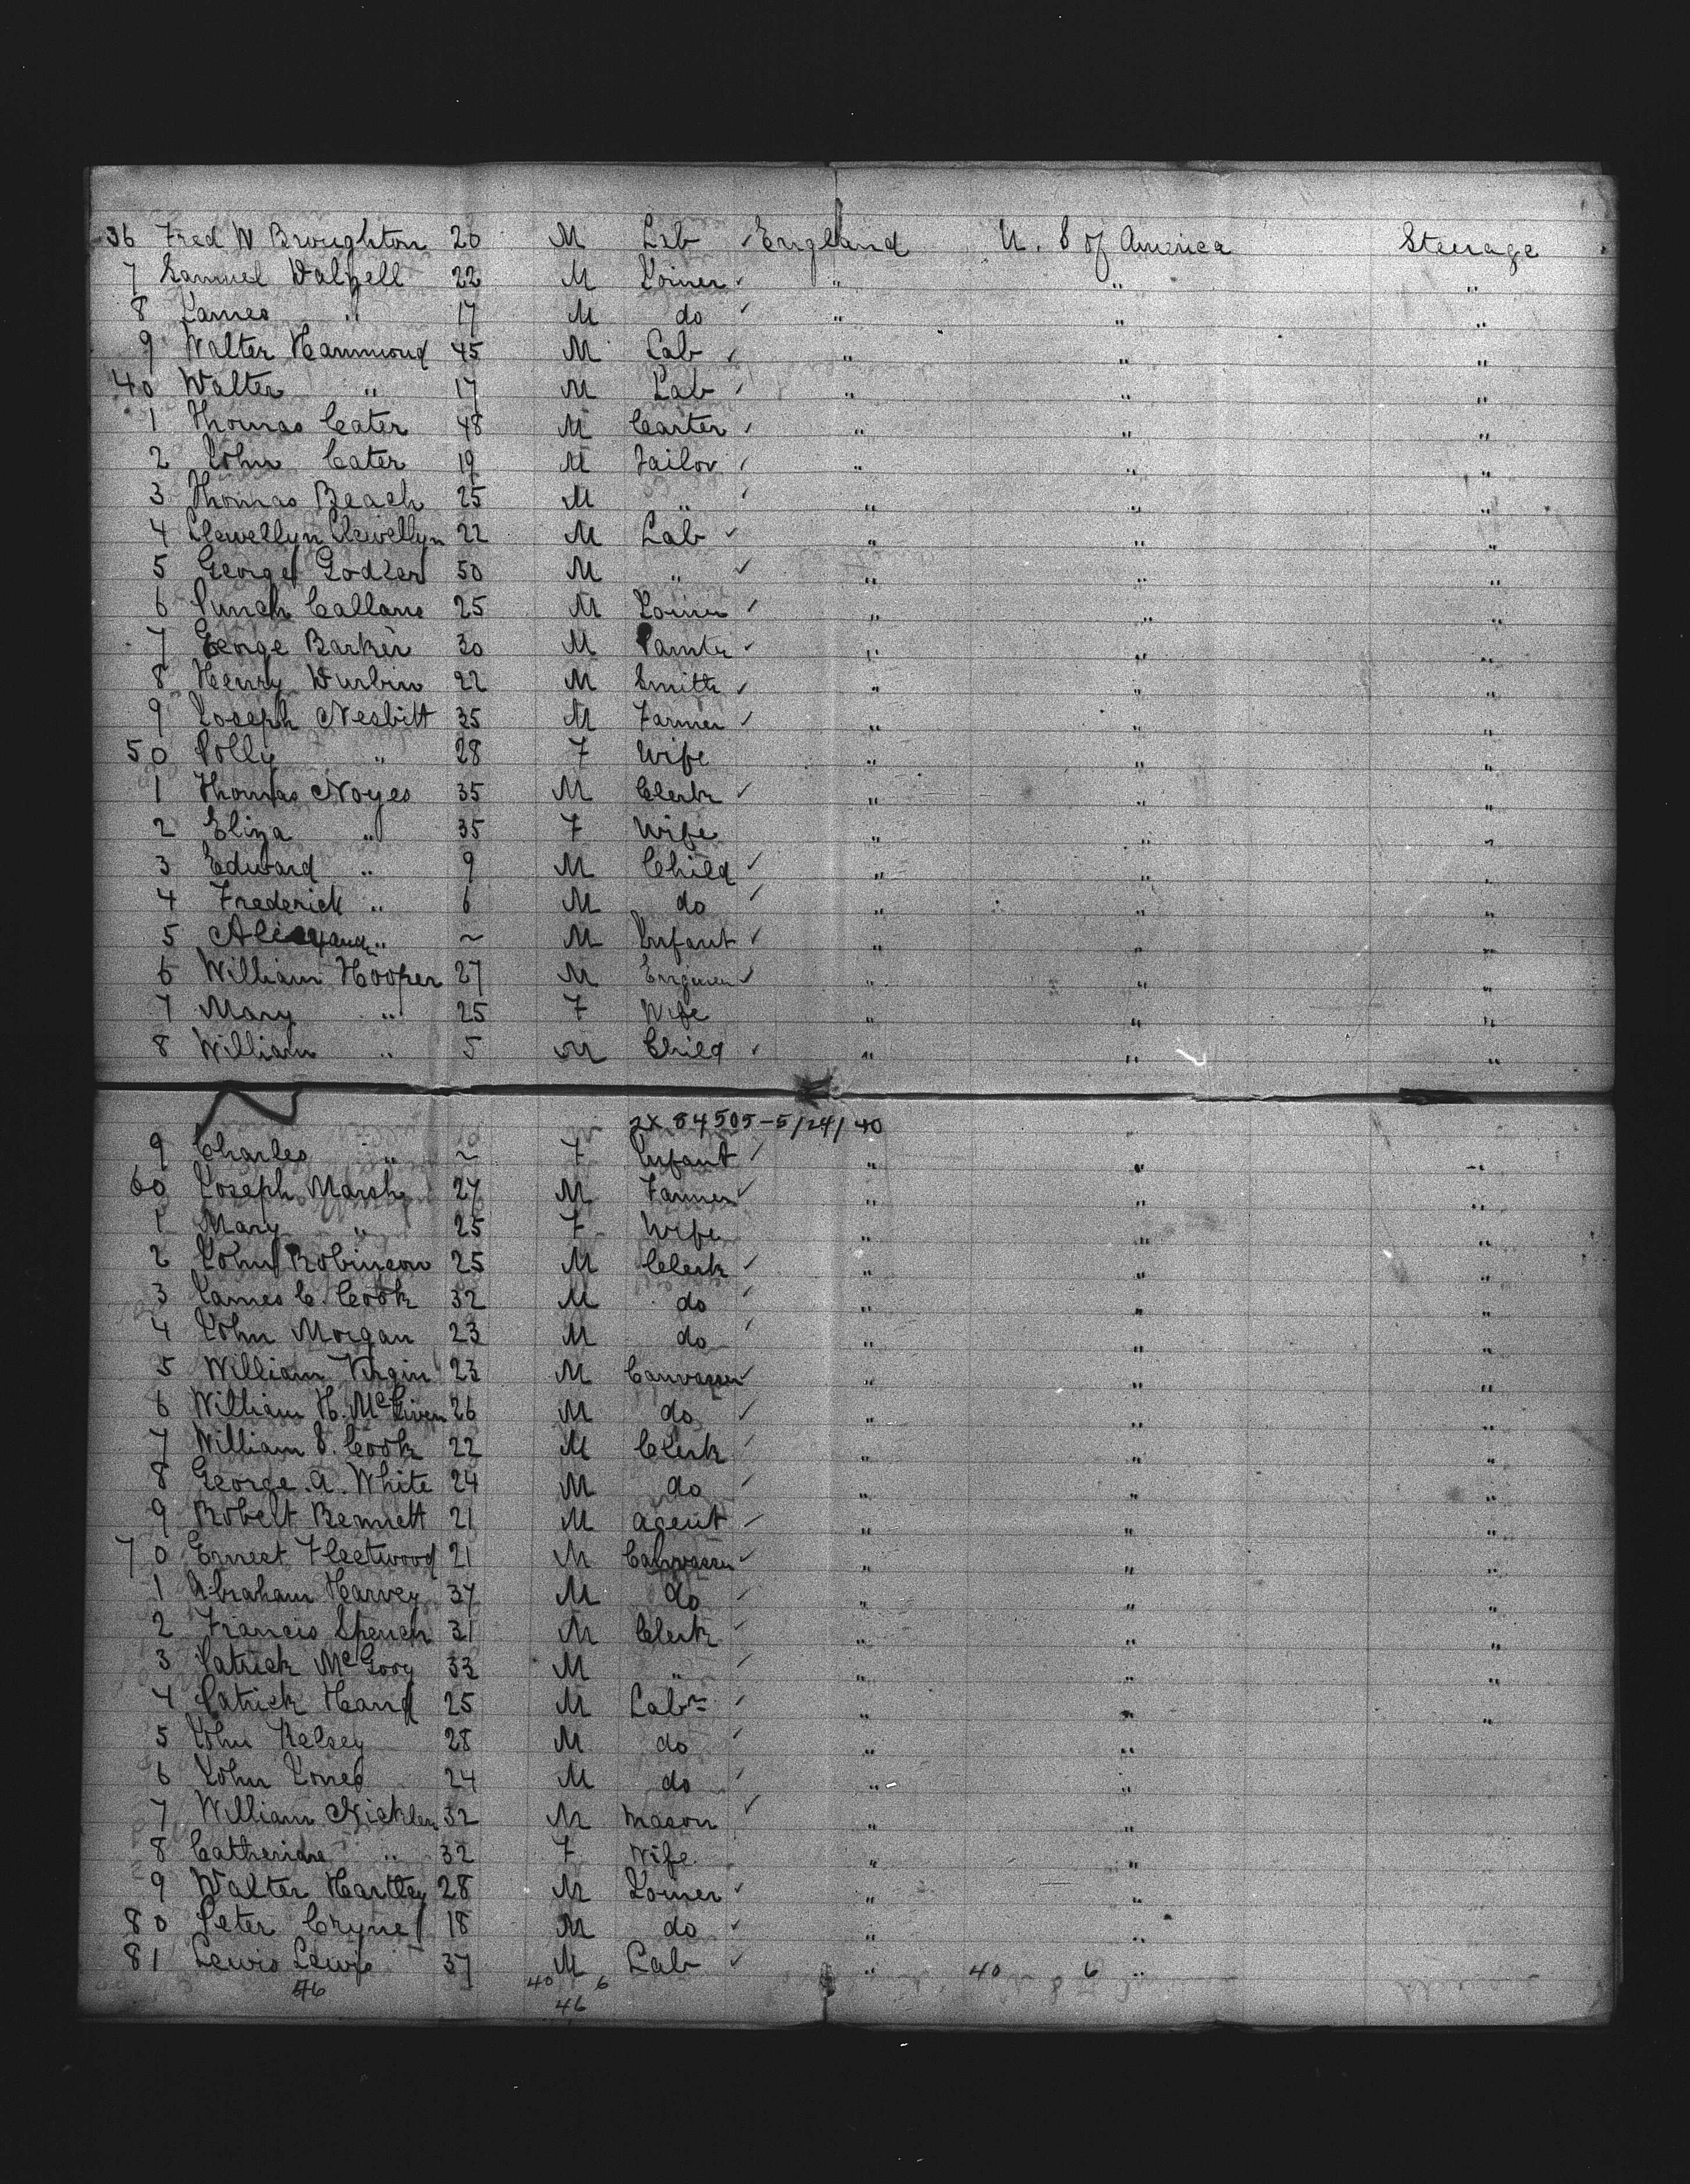 36 Fred W Broughton 20 M Lab ✓ England U. S of America Steerage
7 Samuel Dalzell 22 M Joiner ✓ " " "
8 James " 17 M do ✓ " " "
9 Walter Hammond 45 M Lab ✓ " " "
40 Walter " 17 M Lab ✓ " " "
1 Thomas Cater 48 M Carter ✓ " " "
2 John Cater 19 M Tailor ✓ " " "
3 Thomas Beach 25 M " ✓ " " "
4 Llewellyn Llewellyn 22 M Lab ✓ " " "
5 George 50 M " ✓ " " "
6 25 M Joiner ✓ " " "
7 George Barker 30 M Painter ✓ " " "
8 Henry Durbin 22 M Smith ✓ " " "
9 Joseph Nesbitt 35 M Farmer ✓ " " "
50 Polly " 28 F Wife " " "
1 Thomas Noyes 35 M Clerk ✓ " " "
2 Eliza " 35 F Wife " " "
3 Edward " 9 M Child ✓ " " "
4 Frederick " 6 M do ✓ " " "
5 " ~ M Infant ✓ " " "
6 William Hooper 27 M Engineer ✓ " " "
7 Mary " 25 F Wife " " "
8 William " 5 M Child ✓ " " "
2X 84505-5/24/40
9 Charles " ~ F Infant ✓ " " "
60 Joseph Marsh 27 M Farmer ✓ " " "
1 Mary " 25 F Wife " " "
2 John Robinson 25 M Clerk ✓ " " "
3 James C. Cook 32 M do ✓ " " "
4 John Morgan 23 M do ✓ " " "
5 William Virgin 23 M Canvasser ✓ " " "
6 William H. McGiven 26 M do ✓ " " "
7 William S. Cook 22 M Clerk ✓ " " "
8 George. A. White 24 M do ✓ " " "
9 Robert Bennett 21 M Agent ✓ " " "
70 Ernest Fleetwood 21 M Canvasser ✓ " " "
1 Abraham Harvey 37 M do ✓ " " "
2 Francis 31 M Clerk ✓ " " "
3 Patrick 33 M " ✓ " " "
4 Patrick Hand 25 M Labr ✓ " " "
5 John Kelsey 28 M do ✓ " "
6 John Jones 24 M do ✓ " "
7 William 32 M Mason ✓ " "
8 Catherine " 32 F Wife " "
9 Walter Hartley 28 M Joiner ✓ " "
80 Peter Cryne 18 M do ✓ " "
81 Lewis Lewis 37 M Lab ✓ " 40 6 "
46 40 6
46